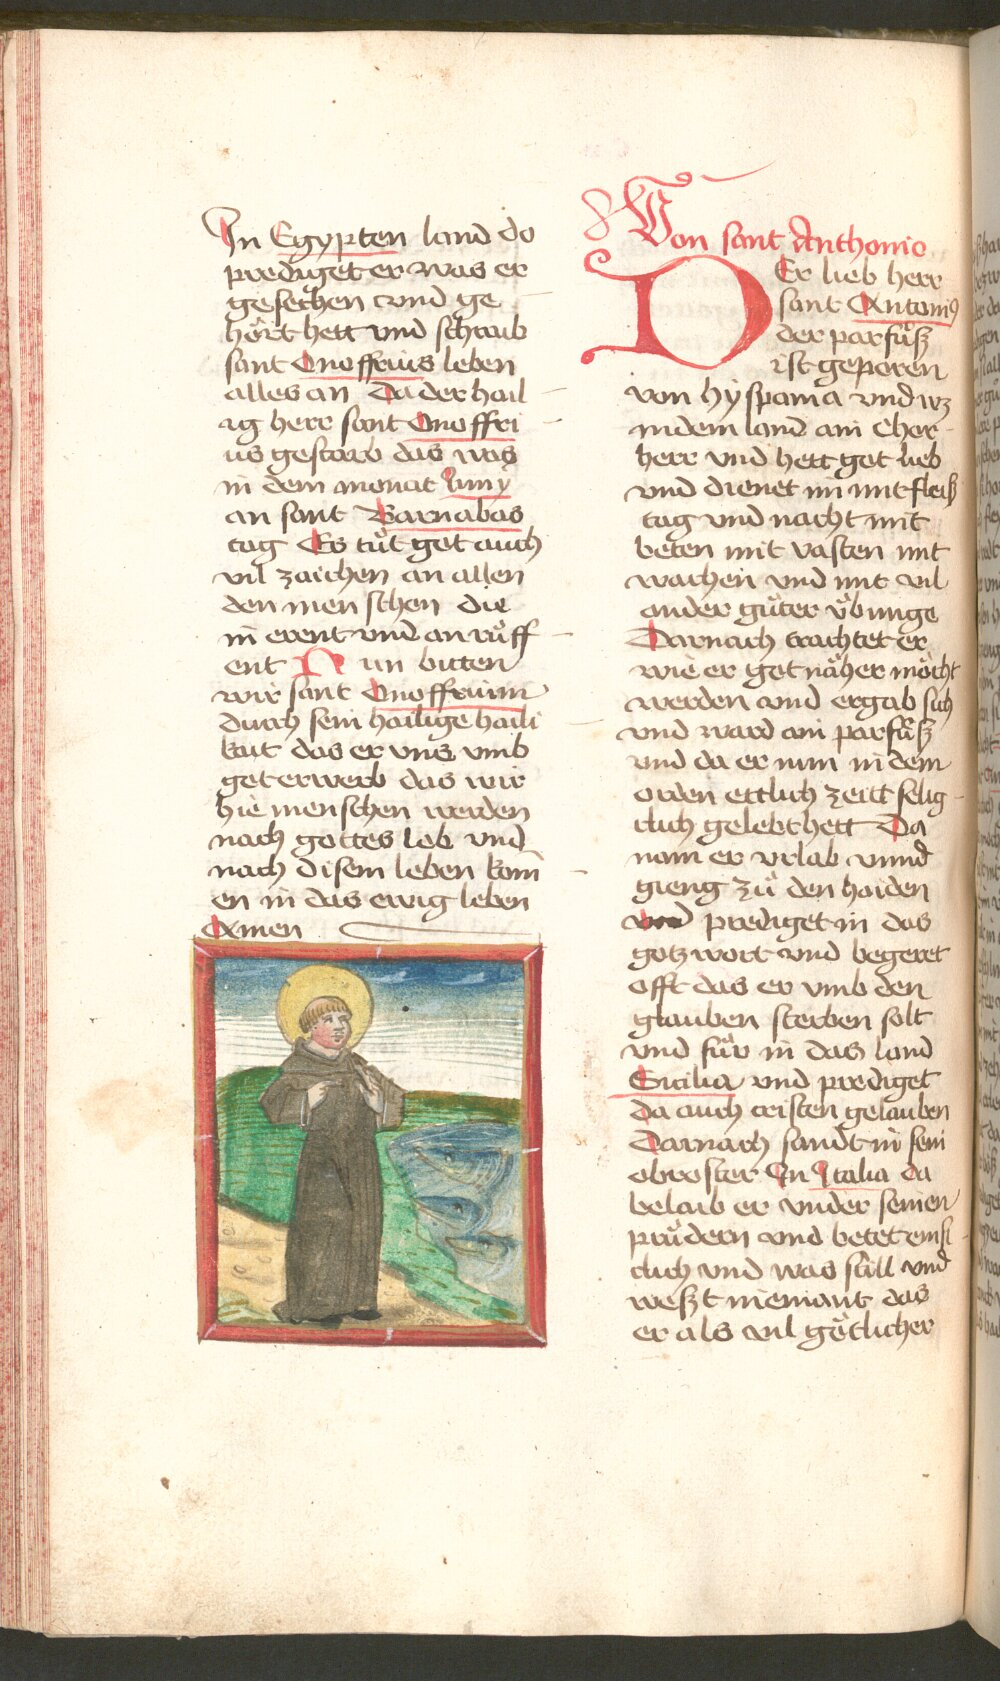 In Egypten land do
prediget er was er
gesechen vnd ge
hört hett vnd schraib
sant Onoffrius leben
alles an Da der hail
ig herr sant Onoffri
us gestarb das was
in dem monat Juny
an sant Barnabas
tag Es tůt got auch
vil zaichen an allen
den menschen die
in erent vnd an růff
ent Nun bitten
wir sant Onoffrium
durch sein hailige haili
kait das er vns vmb
got erwerb das wir
hie menschen werden
nach gottes lob vnd
nach disem leben kom̄
en in das ewig leben
Amen
Von sant Anthonio
DEr lieb herr
sant Antoniꝰ
der parfůsz
ist geporen
von hyspania vnd wz
in dem land ain Chor
herr vnd hett got lieb
vnd dienet im mit fleisz
tag vnd nacht mit
beten mit vasten mit
wachen vnd mit vil
ander gůter v̊bunge
Darnach trachtet er
wie er got näher möcht
werden vnd ergab sich
vnd ward ain parfůsz
vnd da er nun in dem
orden ettlich zeitt selig
clich gelebt hett Da
nam er vrlab vnnd
gieng zů den haiden
vnd prediget in das
gotzwort vnd begeret
offt das er vmb den
glauben sterben solt
vnd fůr in das land
Sicilia vnd prediget
da auch cristen gelauben
Darnach sandt in sein
obroster In Italia da
belaib er vnder seinen
průdern vnd betet ensi
clich vnd was still vnd
weszt niemant das
er als vil götlicher